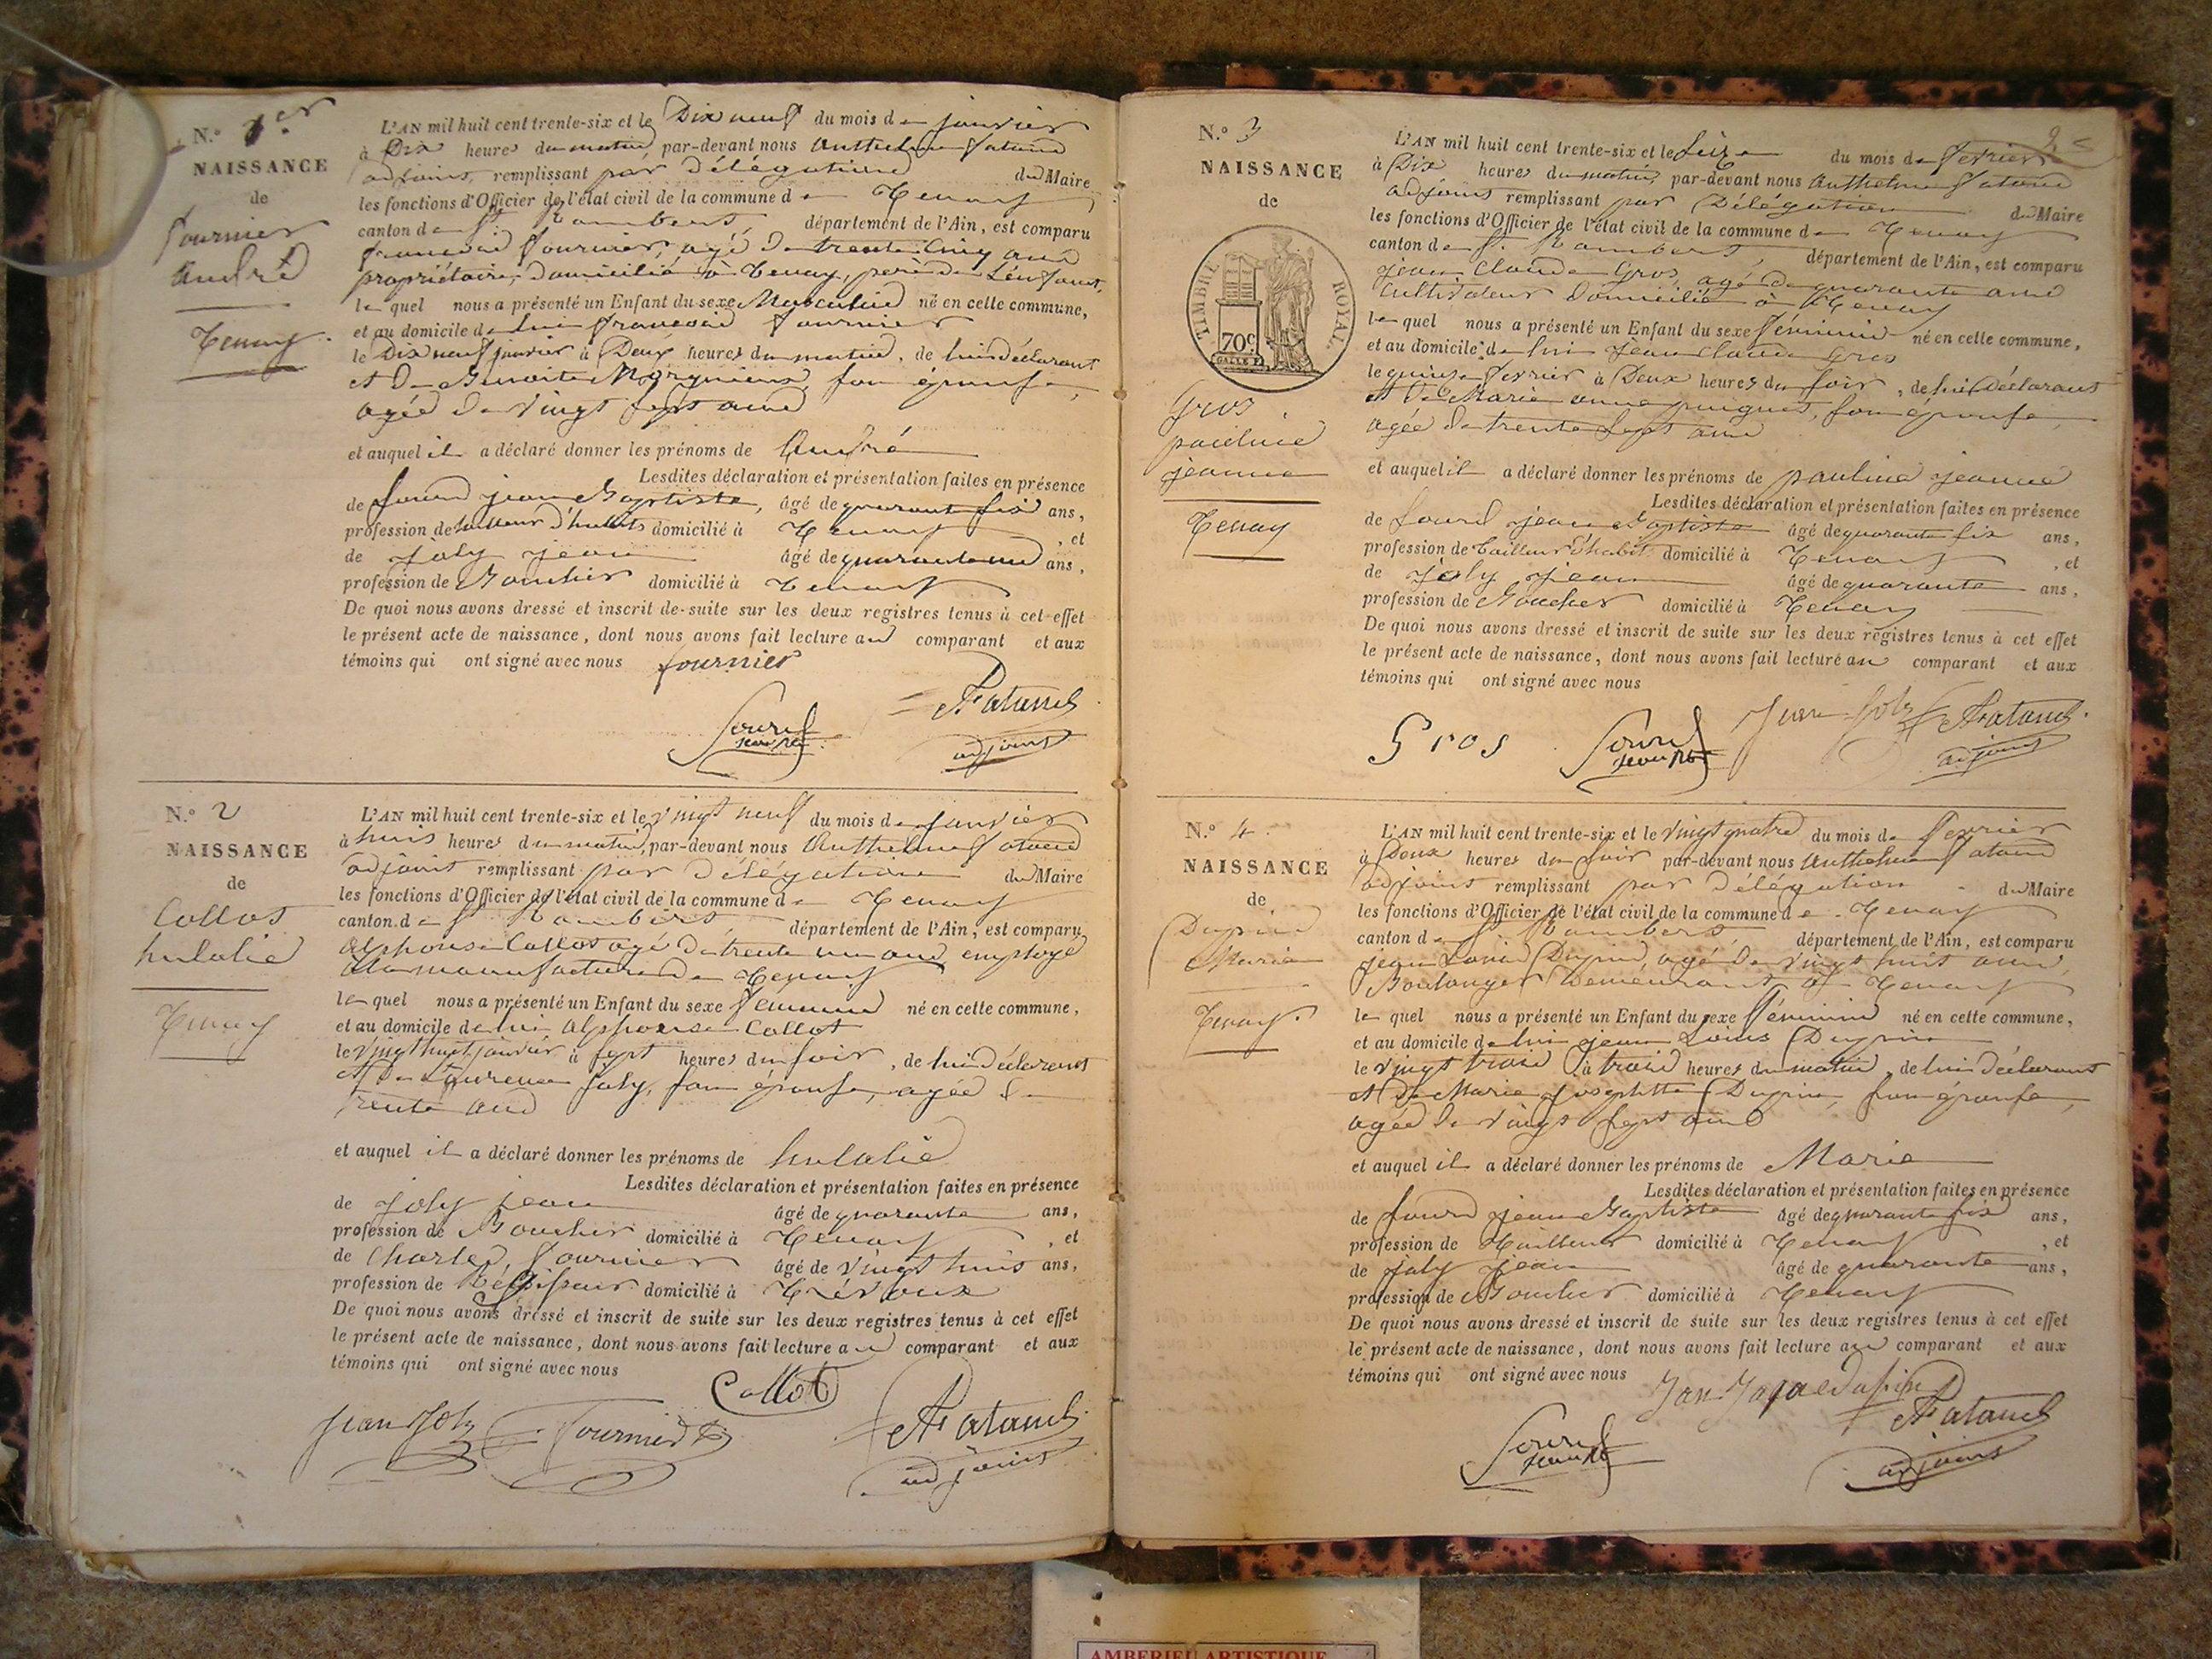 N.º 1er
NAISSANCE
de
Fournier
André
Tenay
L'AN mil huit cent trente-six et le Dix neuf du mois de janvier
à Dix heures du matin, par-devant nous Anthelme Fatand
adjoint, remplissant par Délégation du Maire
les fonctions d'Officier de l'état civil de la commune de Tenay
canton de St. Rambert, département de l'Ain, est comparu
francois fournier, agé de trente cinq ans
propriétaire, domicilié à Tenay, père de L'enfant,
le quel nous a présenté un Enfant du sexe Masculin né en cette commune,
et au domicile de lui francois fournier
le Dix neuf janvier à Deux heures du matin, de lui déclarant
et De Benoite son épouse,
agée De vingt sept ans
et auquel il a déclaré donner les prénoms de André
Lesdites déclaration et présentation faites en présence
de jean Baptiste, âgé de quarante six ans,
profession de tailleur d'habits domicilié à Tenay, et
de joly jean âgé de quarante ans,
profession de Boucher domicilié à Tenay
De quoi nous avons dressé et inscrit de suite sur les deux registres tenus à cet effet
le présent acte de naissance, dont nous avons fait lecture au comparant et aux
témoins qui ont signé avec nous fournier
Fatand
adjoint
N.º 2
NAISSANCE
de
Collot
hulalie
Tenay
L'AN mil huit cent trente-six et le vingt neuf du mois de janvier
à huit heures du matin, par-devant nous Anthelme Fatand
adjoint remplissant par Délégation du Maire
les fonctions d'Officier de l'état civil de la commune de Tenay
canton de St Rambert, département de l'Ain, est comparu
alphonse Collot agé de trente un ans employé
à la manufacture de Tenay
le quel nous a présenté un Enfant du sexe feminin né en cette commune,
et au domicile de lui alphonse Collot
le vingt huit janvier à sept heures du soir, de lui déclarant
et de Laurence joly, son épouse, agée de
trente ans
et auquel il a déclaré donner les prénoms de hulalie
Lesdites déclaration et présentation faites en présence
de joly jean âgé de quarante ans,
profession de Boucher domicilié à Tenay, et
de Charles fournier âgé de vingt huit ans,
profession de domicilié à Trévoux
De quoi nous avons dressé et inscrit de suite sur les deux registres tenus à cet effet
le présent acte de naissance, dont nous avons fait lecture au comparant et aux
témoins qui ont signé avec nous
Collot
jean joly Fournier Fatand
adjoint
N.º 3
NAISSANCE
de
TIMBRE ROYAL.
70c
Gros
pauline
jeanne
Tenay
L'AN mil huit cent trente-six et le seize du mois de fevrier
à Dix heures du matin, par-devant nous Anthelme Fatand
adjoint remplissant par Délégation du Maire
les fonctions d'Officier de l'état civil de la commune de Tenay
canton de St. Rambert, département de l'Ain, est comparu
jean Claude Gros, agé de quarante ans
cultivateur domicilié à Tenay
le quel nous a présenté un Enfant du sexe féminin né en cette commune,
et au domicile de lui jean claude Gros
le quinze fevrier à Deux heures du soir, de lui Déclarant
et De Marie anne son épouse,
agée de trente sept ans
et auquel il a déclaré donner les prénoms de pauline jeanne
Lesdites déclaration et présentation faites en présence
de jean Baptiste âgé de quarante six ans,
profession de tailleur d'habit domicilié à Tenay, et
de joly jean âgé de quarante ans,
profession de Boucher domicilié à Tenay
De quoi nous avons dressé et inscrit de suite sur les deux registres tenus à cet effet
le présent acte de naissance, dont nous avons fait lecture au comparant et aux
témoins qui ont signé avec nous
Gros Fatand
adjoint
N.º 4
NAISSANCE
de
Dupin
Marie
Tenay
L'AN mil huit cent trente-six et le vingt quatre du mois de fevrier
à Deux heures du soir par-devant nous Anthelme Fatand
adjoint remplissant par Délégation du Maire
les fonctions d'Officier de l'état civil de la commune de Tenay
canton de St. Rambert, département de l'Ain, est comparu
jean Louis Dupin, agé De vingt huit ans,
Boulanger Demeurant à Tenay
le quel nous a présenté un Enfant du sexe féminin né en cette commune,
et au domicile de lui jean Louis Dupin
le vingt trois à trois heures du matin, de lui Déclarant
et De Marie josephtte Dupin, son épouse,
agée De vingt sept ans
et auquel il a déclaré donner les prénoms de Marie
Lesdites déclaration et présentation faites en présence
de jean Baptiste âgé de quarante six ans,
profession de tailleur domicilié à Tenay, et
de joly jean âgé de quarante ans,
profession de Boucher domicilié à Tenay
De quoi nous avons dressé et inscrit de suite sur les deux registres tenus à cet effet
le présent acte de naissance, dont nous avons fait lecture au comparant et aux
témoins qui ont signé avec nous
Fatand
adjoint
AMBERIEU ARTISTIQUE